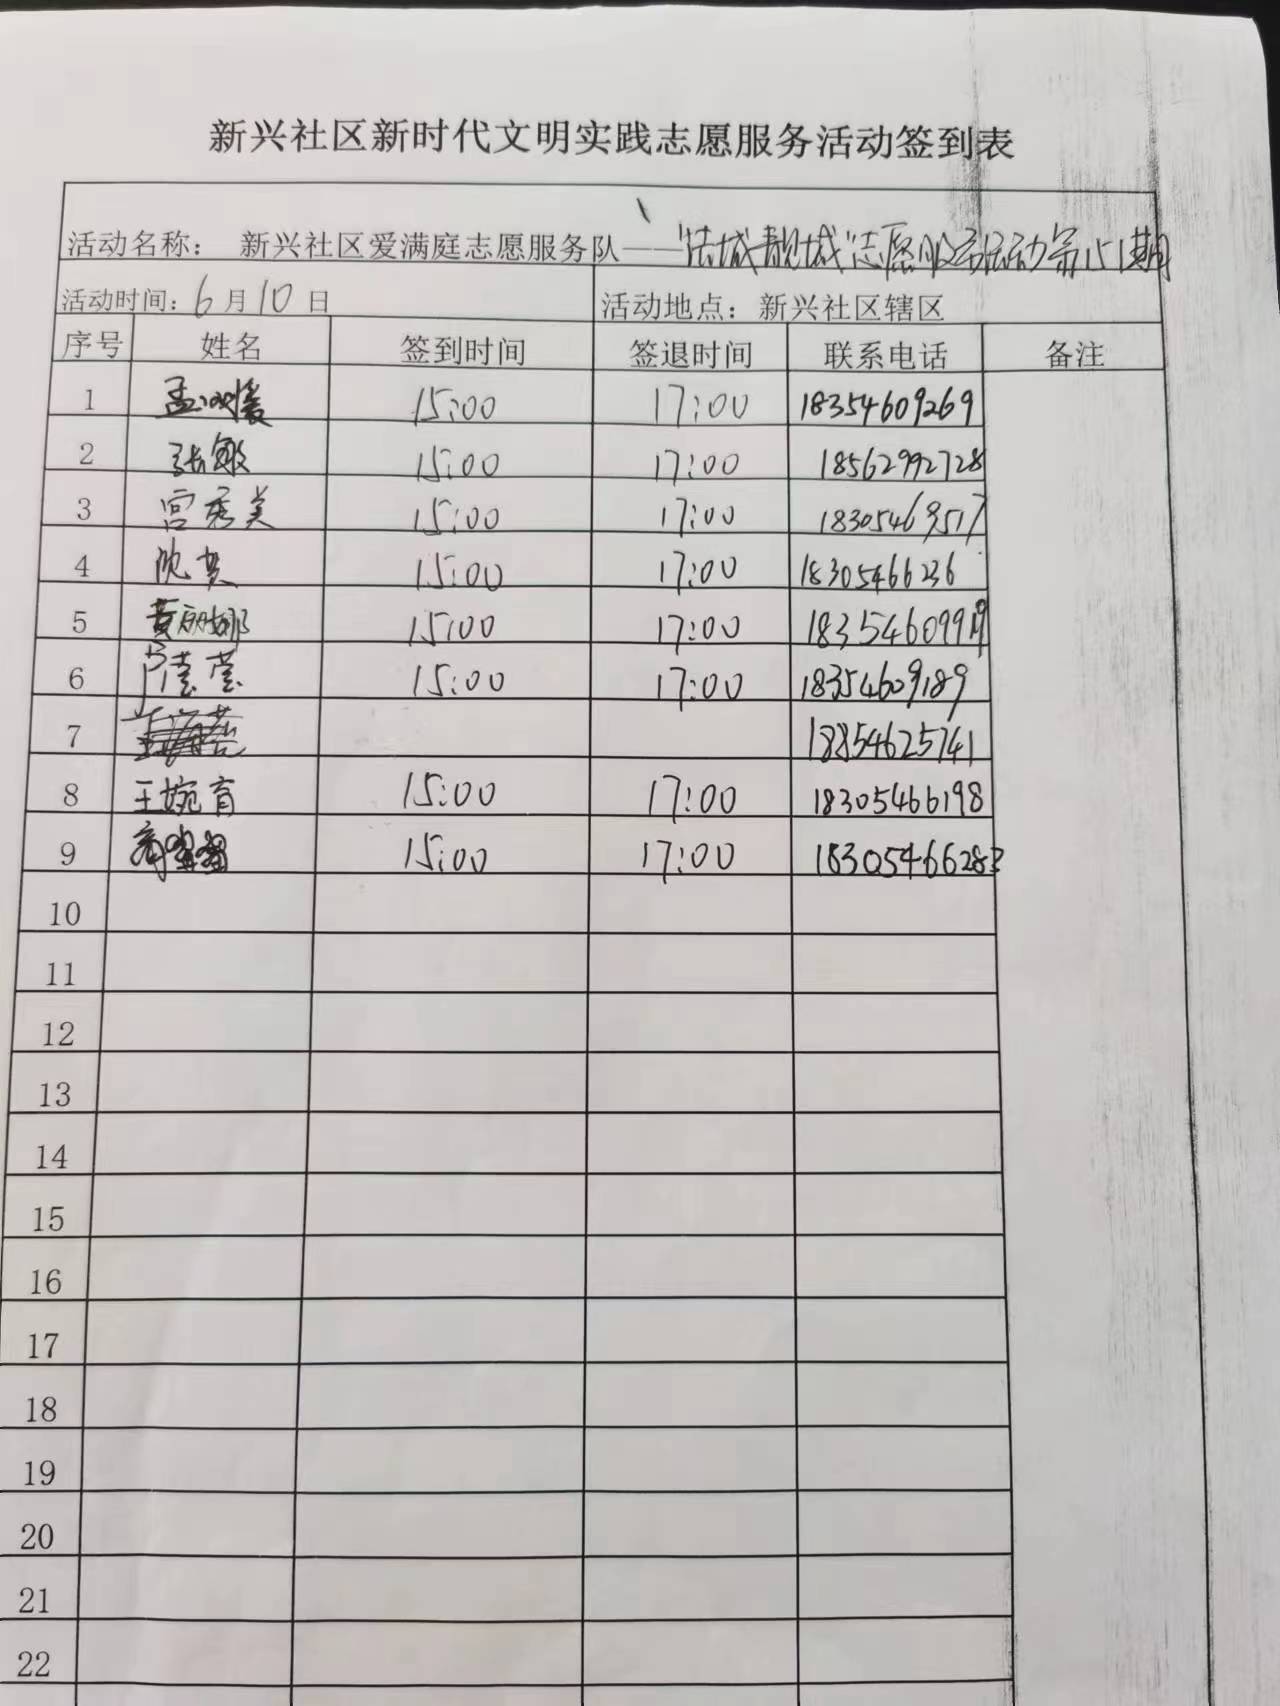 新兴社区新时代文明实践志愿服务活动签到表
活动名称： 新兴社区爱满庭志愿服务队——“洁城靓城”志愿服务活动第151期
活动时间：6月10日 活动地点：新兴社区辖区
序号 姓名 签到时间 签退时间 联系电话 备注
1 孟 15:00 17:00 18354609269
2 张敏 15:00 17:00 18562992728
3 宫秀美 15:00 17:00 18305469517
4 15:00 17:00 18305466236
5 黄丽娜 15:00 17:00
6 莹莹 15:00 17:00 18354609189
7 18854625741
8 王婉育 15:00 17:00 18305466198
9 15:00 17:00 18305466283
10
11
12
13
14
15
16
17
18
19
20
21
22